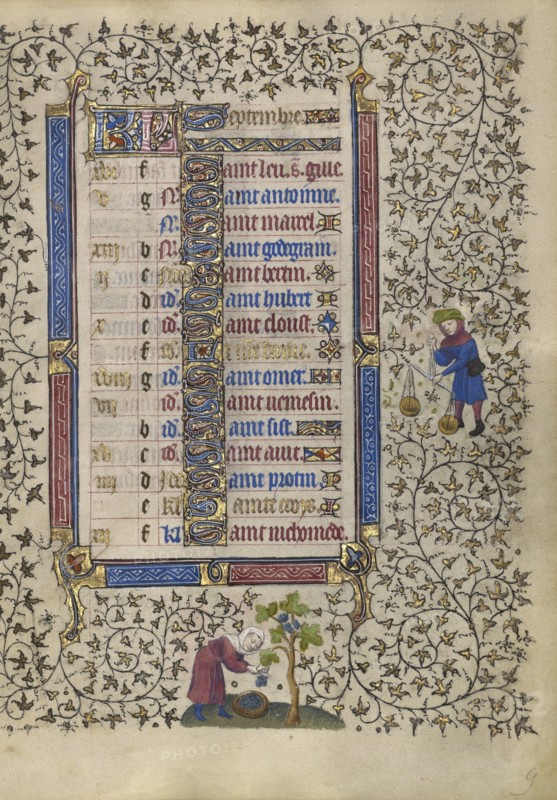 KL Septembre
f Saint leu. s. gille.
v g N. Saint antoinne.
N. Saint marcel
xiij b N. Saint godegrain.
ij c Saint bertin.
d id. Saint hubert
x e id. Saint cloust.
f id.
xviij g id. Saint omer.
vij id. Saint nemesin.
b id. Saint sist.
c id. Saint auit.
iiij d Saint protin.
e kl Sainte crois.
xij f kl Saint nichomede.
9